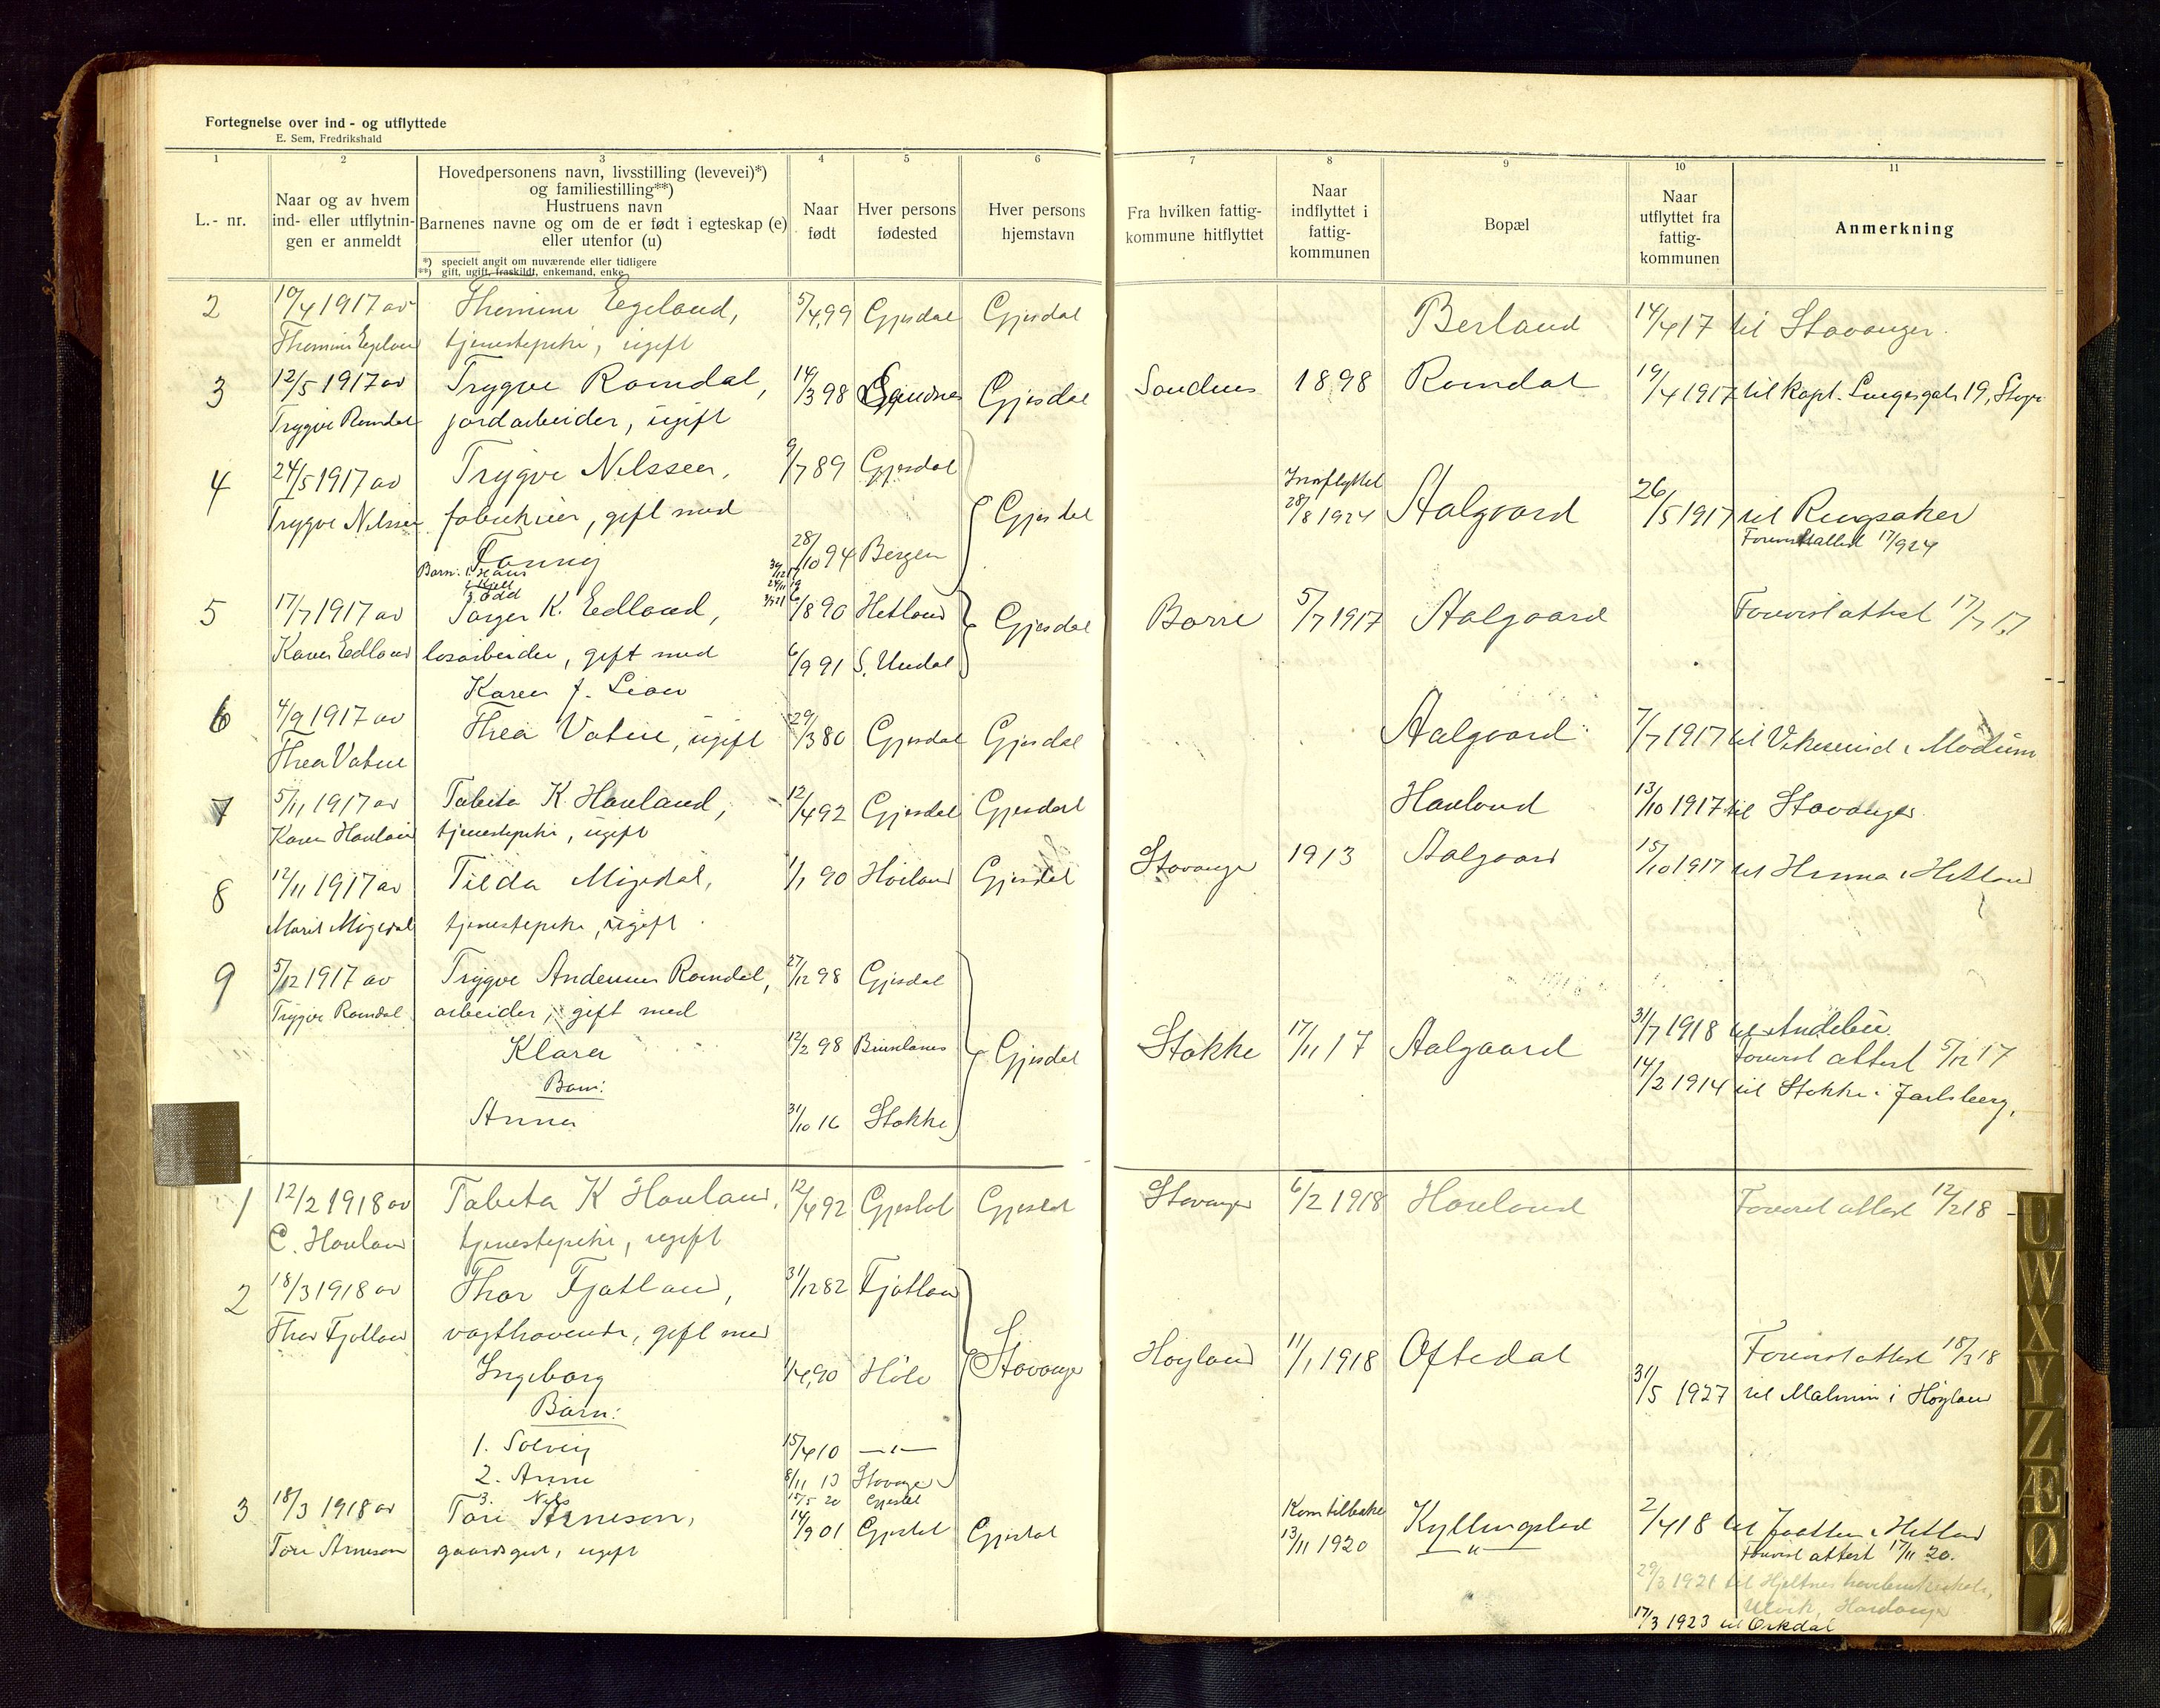 Fortegnelse over ind - og utflyttede
E. Sem, Fredrikshald
1 2 3 4 5 6 7 8 9 10 11
L.- nr.
Naar og av hvem
ind- eller utflytnin-
gen er anmeldt
Hovedpersonens navn, livsstilling (levevei)*)
og familiestilling**)
Hustruens navn
Barnenes navne og om de er født i egteskap (e)
eller utenfor (u)
*) specielt angit om nuværende eller tidligere
**) gift, ugift, fraskildt, enkemand, enke
Naar
født
Hver persons
fødested
Hver persons
hjemstavn
Fra hvilken fattig-
kommune hitflyttet
Naar
indflyttet i
fattig-
kommunen
Bopæl
Naar
utflyttet fra
fattig-
kommunen
Anmerkning
2 10/4 1917 av Egeland, 5/4 99 Gjesdal Gjesdal Berland 14/4 17 til Stavanger.
tjenestepike, ugift
3 12/5 1917 av Trygve Romdal, 14/3 98 Sandnes Gjesdal Sandnes 1898 Romdal 19/4 1917 til Kapt. 19,
Trygve Romdal jordarbeider, ugift
4 24/5 1917 av Trygve Nilssen, 9/7 89 Gjesdal Gjesdal Indflyttet 28/8 1924 Aalgaard 26/5 1917 til Ringsaker
Trygve Nilssen gift med Forevist attest 17/9 24
Fanny 28/10 94 Bergen
Barn: 1. Hans
2. Kjell
3. Odd
5 17/7 1917 av K. Edland, 6/8 90 Hetland Gjesdal Borre 5/7 1917 Aalgaard Forevist attest 17/7 17
Karen Edland løsarbeider, gift med 6/9 91 S. Undal
Karen J. Lian
6 4/9 1917 av Thea Vatne, ugift 29/3 80 Gjesdal Gjesdal Aalgaard 7/7 1917 til Vikersund i Modum
Thea Vatne
7 5/11 1917 av Tabita K. Hauland, 12/4 92 Gjesdal Gjesdal Hauland 13/10 1917 til Stavanger
Karen Hauland tjenestepike, ugift
8 12/11 1917 av Tilda Migedal, 1/1 90 Høiland Gjesdal Stavanger 1913 Aalgaard 15/10 1917 til Hinna i Hetland
Marit Migedal tjenestepike, ugift
9 5/12 1917 av Trygve Andersen Romdal, 27/12 98 Gjesdal
Trygve Romdal arbeider, gift med 31/7 1918 til Andebu
Klara 12/2 98 Brunlanes Gjesdal Stokke 17/11 17 Aalgaard Forevist attest 5/12 17
Barn: 14/2 1914 til Stokke i Jarlsberg,
Anna 31/10 16 Stokke
1 12/2 1918 av Tabita K Hauland, 12/4 92 Gjesdal Gjesdal Stavanger 6/2 1918 Haueland Forevist attest 12/2 18
C. Hauland tjenestepike, ugift
2 18/3 1918 av Thor Fjotland, 31/12 82 Fjotland
Thor Fjotland vagthavende, gift med Høyland 11/1 1918 Oftedal Forevist attest 18/3 18
Ingeborg 1/4 90 Høle Stavanger 31/5 1927 til Malmin i Høyland
Barn:
1. Solveig 15/4 10 —"—
2. Anne 8/11 13 Stavanger
3. Nils 15/5 20 Gjesdal
3 18/3 1918 av Tore Arneson, 14/9 01 Gjesdal Gjesdal Kom tilbake 13/11 1920 Kyllingstad 2/4 18 til Jaatten i Hetland
Tore Arneson gaardsgut, ugift —"— Forevist attest 17/11 20.
29/3 1921 til Hjeltnes
Ulvik, Hardanger
17/3 1923 til Orkdal
U
W
X
Y
Z
Æ
Ø